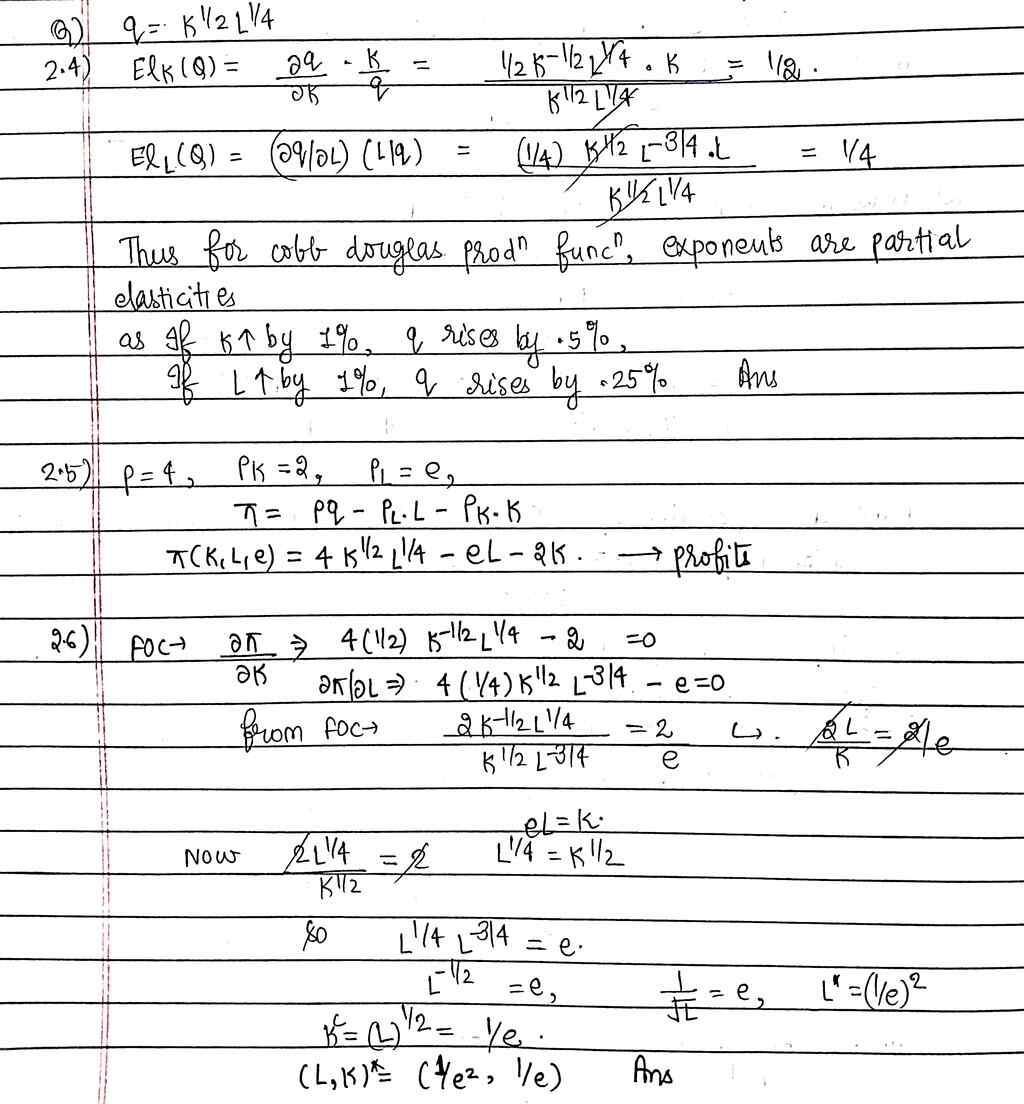 Q) q = K^1/2 L^1/4
2.4) El_K(Q) = ∂q/∂K · K/q = (1/2 K^-1/2 L^1/4 · K)/(K^1/2 L^1/4) = 1/2.
El_L(Q) = (∂q/∂L) (L/q) = ((1/4) K^1/2 L^-3/4 · L)/(K^1/2 L^1/4) = 1/4
Thus for cobb douglas prod^n func^n, exponents are partial
elasticities
as If K↑ by 1%, q rises by .5%,
If L↑ by 1%, q rises by .25% Ans
2.5) P = 4, P_K = 2, P_L = e,
π = Pq - P_L.L - P_K.K
π(K,L,e) = 4 K^1/2 L^1/4 - eL - 2K. → profits
2.6) FOC→ ∂π/∂K ⇒ 4(1/2) K^-1/2 L^1/4 - 2 = 0
∂π/∂L ⇒ 4(1/4) K^1/2 L^-3/4 - e = 0
from FOC→ (2K^-1/2 L^1/4)/(K^1/2 L^-3/4) = 2/e ↳. 2L/K = 2/e
eL = K.
Now 2L^1/4/K^1/2 = 2 L^1/4 = K^1/2
So L^1/4 L^-3/4 = e.
L^-1/2 = e, 1/√L = e, L* = (1/e)^2
K^c = (L)^1/2 = 1/e.
(L,K)* = (1/e^2, 1/e) Ans